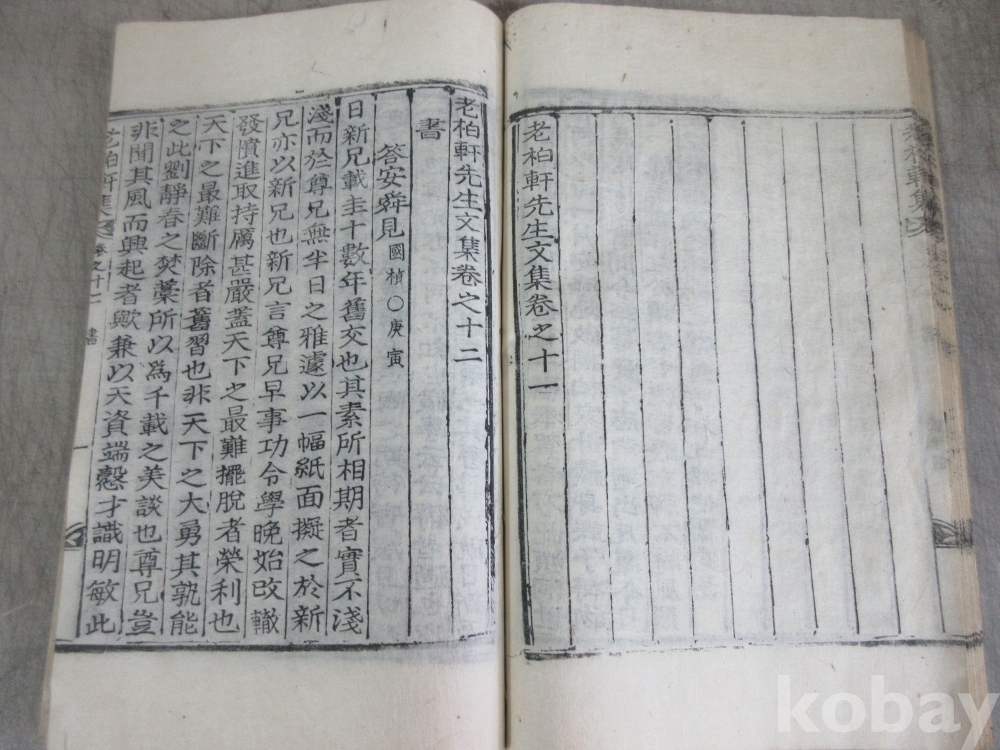 老柏軒先生文集卷之十一
老柏軒先生文集卷之十二
書
答安舜見國楨○庚寅
日新兄載圭十數年舊交也其素所相期者實不淺
淺而於尊兄無半日之雅遽以一幅紙面擬之於新
兄亦以新兄也新兄言尊兄早事功令學晚始改轍
發憤進取持厲甚嚴蓋天下之最難擺脫者榮利也
天下之最難斷除者舊習也非天下之大勇其孰能
之此劉靜春之焚藁所以為千載之美談也尊兄豈
非聞其風而興起者歟兼以天資端慤才識明敏此
老柏軒集 卷之十二 書 一
kobay